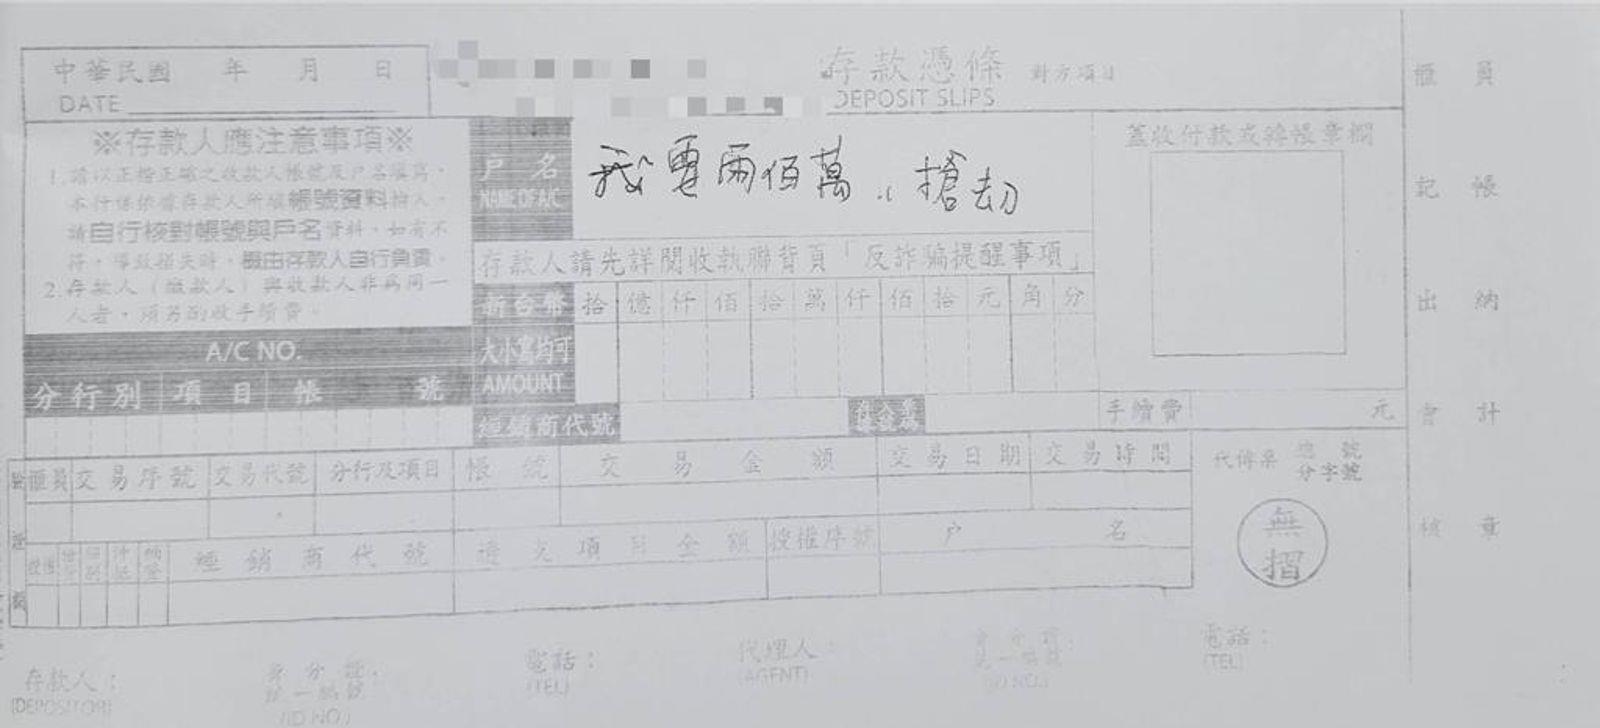 中華民國 年 月 日
DATE
存款憑條 對方項目
DEPOSIT SLIPS
※存款人應注意事項※
1.請以正楷正確之收款人帳號及戶名填寫，
本行係依據存款人所填帳號資料撥入，
請自行核對帳號與戶名資料，如有不
符，導致損失時，概由存款人自行負責。
2.存款人（繳款人）與收款人非為同一
人者，須另酌收手續費。
戶名
NAME OF A/C
我要兩佰萬，搶劫
存款人請先詳閱收執聯背頁「反詐騙提醒事項」
新台幣 拾 億 仟 佰 拾 萬 仟 佰 拾 元 角 分
大小寫均可
AMOUNT
A/C NO.
分行別 項目 帳 號
經銷商代號
手續費 元
蓋收付款或轉帳章欄
櫃員
記帳
出納
會計
核章
櫃員 交易序號 交易代號 分行及項目 帳號 交易金額 交易日期 交易時間
經銷商代號 授權序號 戶名
代傳票 總號
分字號
無
摺
存款人：
(DEPOSITOR)
(ID NO.)
電話：
(TEL)
代理人：
(AGENT)
(ID NO.)
電話：
(TEL)